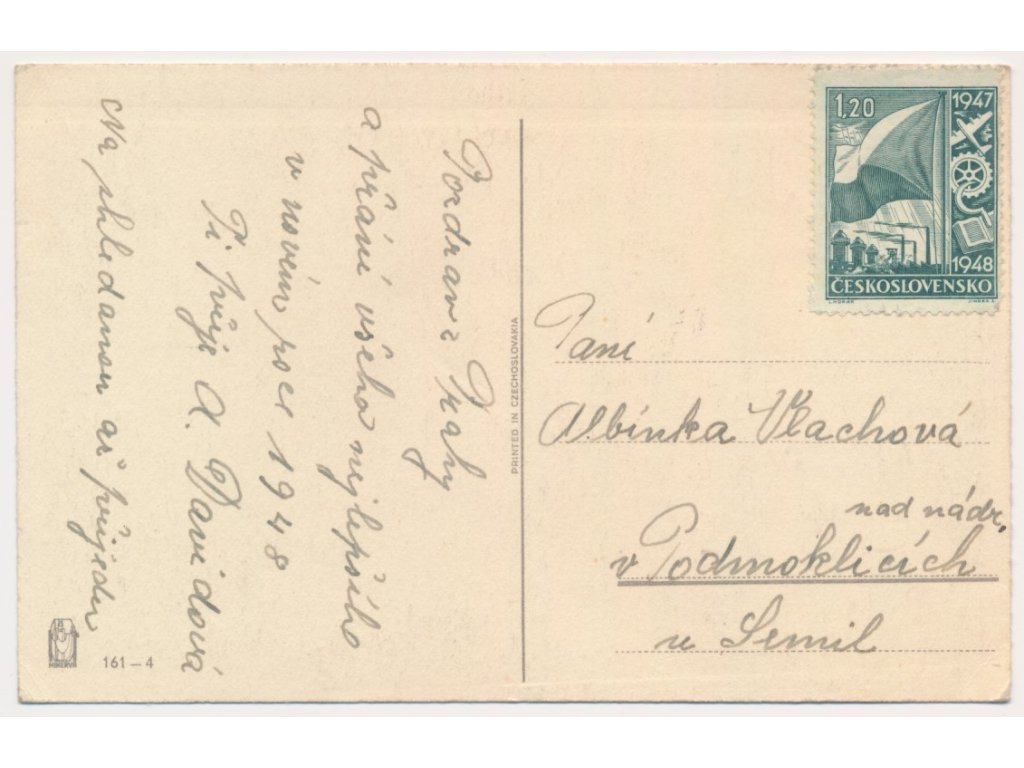 Pozdrav z Prahy
a přání všeho nejlepšího
v novém roce 1948
Ti přeje A. Davidová
Na shledanou až přijedu
MINERVA
161-4
PRINTED IN CZECHOSLOVAKIA
1,20
1947
1948
ČESKOSLOVENSKO
Paní
Albínka Vlachová
nad nádr.
v Podmoklicích
u Semil